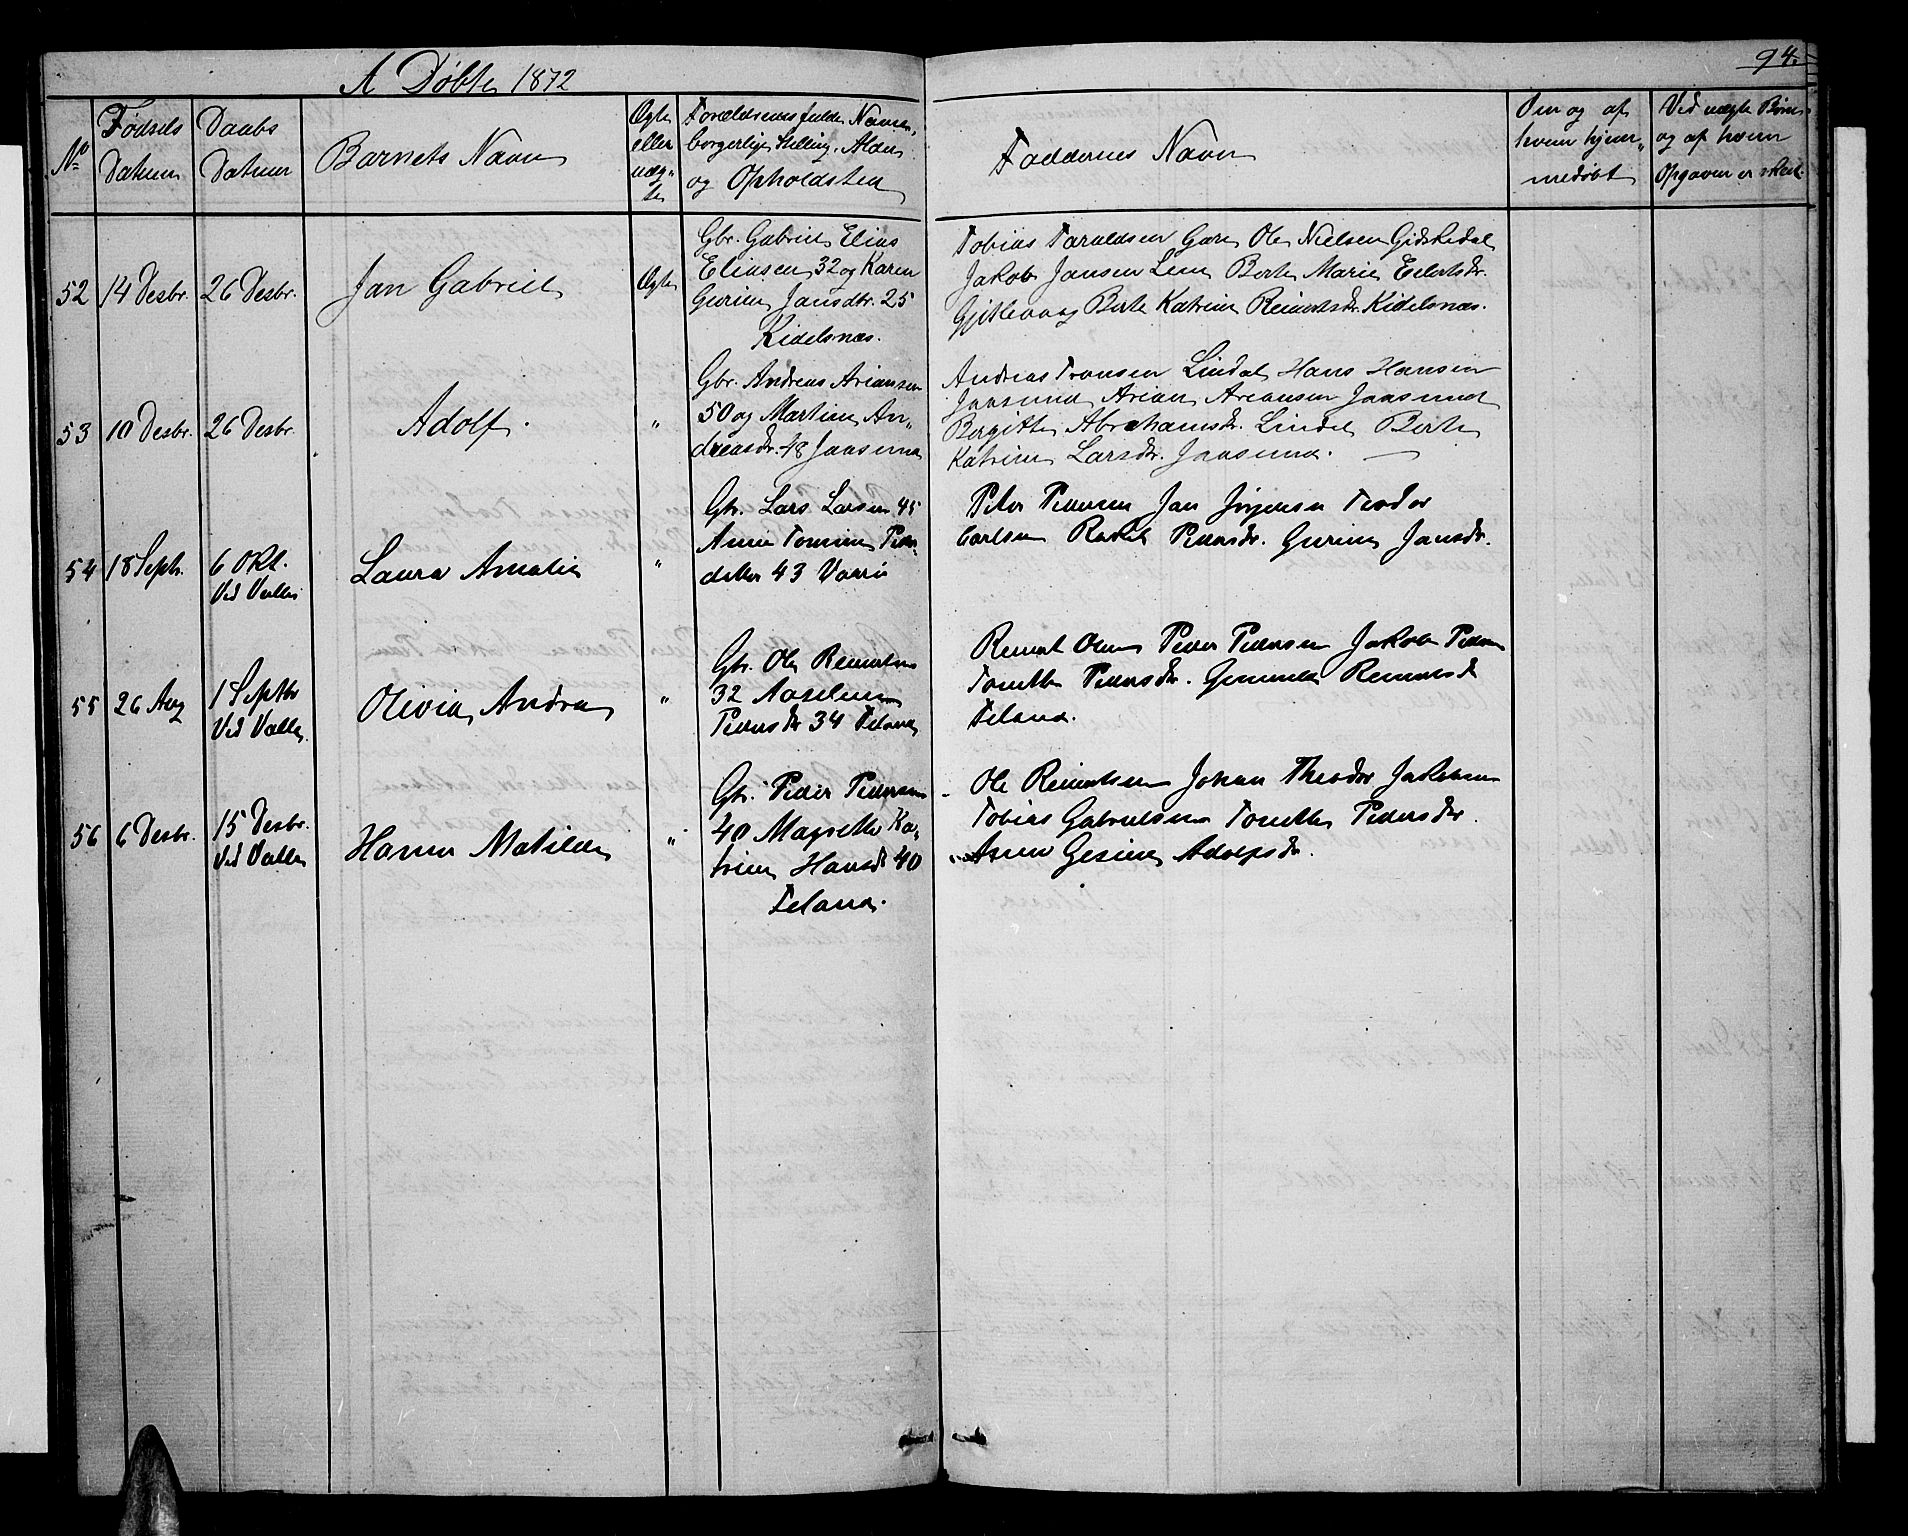 A Døbte 1872
94.
No
Fødsels Datum
Daabs Datum
Barnets Navn
Ægte eller uæg„ te
Forældrenes fulde Navne, borgerlige Stilling, Alder og Opholdsted
Faddernes Navn
Om og af hvem hjem„ medøbt
Ved uægte Børn og af hvem Opgaven er skeet.
52 14 Desbr. 26 Desbr. Jan Gabriel Ægte
Gbr. Gabriel Elias
Eliasen 32 og Karen
Gurine Jansdtr. 25
Kidelsnæs.
Tobias Taraldsen Gare Ole Nielsen Gidskedal
Jakob Jansen Lene Berte Marie Eilertsdr.
Gjitlevaag Berte Katrine Reinertsdr. Kidelsnæs.
53 10 Desbr. 26 Desbr. Adolf. „
Gbr. Andreas Ariansen
50 og Martine An„
dreasdr. 48 Jaasund
Andreas Tronsen Lindal Hans Hansen
Jaasund Arian Ariansen Jaasund
Bergitte Abrahamsdr. Lindal Berte
Katrine Larsdr. Jaasund.
54 18 Septr. 6 Okt. Ved Valle Laura Amalie „
Gbr. Lars Larsen 45
Anne Tomine Peder
datter 43 Vaare
Peter Pedersen Jan Jørgensen Teodor
Carlsen Rakel Pedersdr. Gurine Jansdr.
55 26 Aug 1 Septbr Ved Valle Olivia Andrea „
Gbr. Ole Reinertsen
32 Aaselene
Pedersdr 34 Teland
Reinert Olsen Peder Pedersen Jakob Pedersen
Tonette Pedersdr. Gunnild Reinertsd
Teland.
56 6 Desbr. 15 Desbr. Ved Valle Hanna Matilde „
Gbr. Peder Pedersen
40 Magrethe Ka„
trine Hansdr 40
Teland.
Ole Reinertsen Johan Theodor Jakobsen
Tobias Gabrielsen Tonette Pedersdr.
Anne Gesine Adolfsdr.